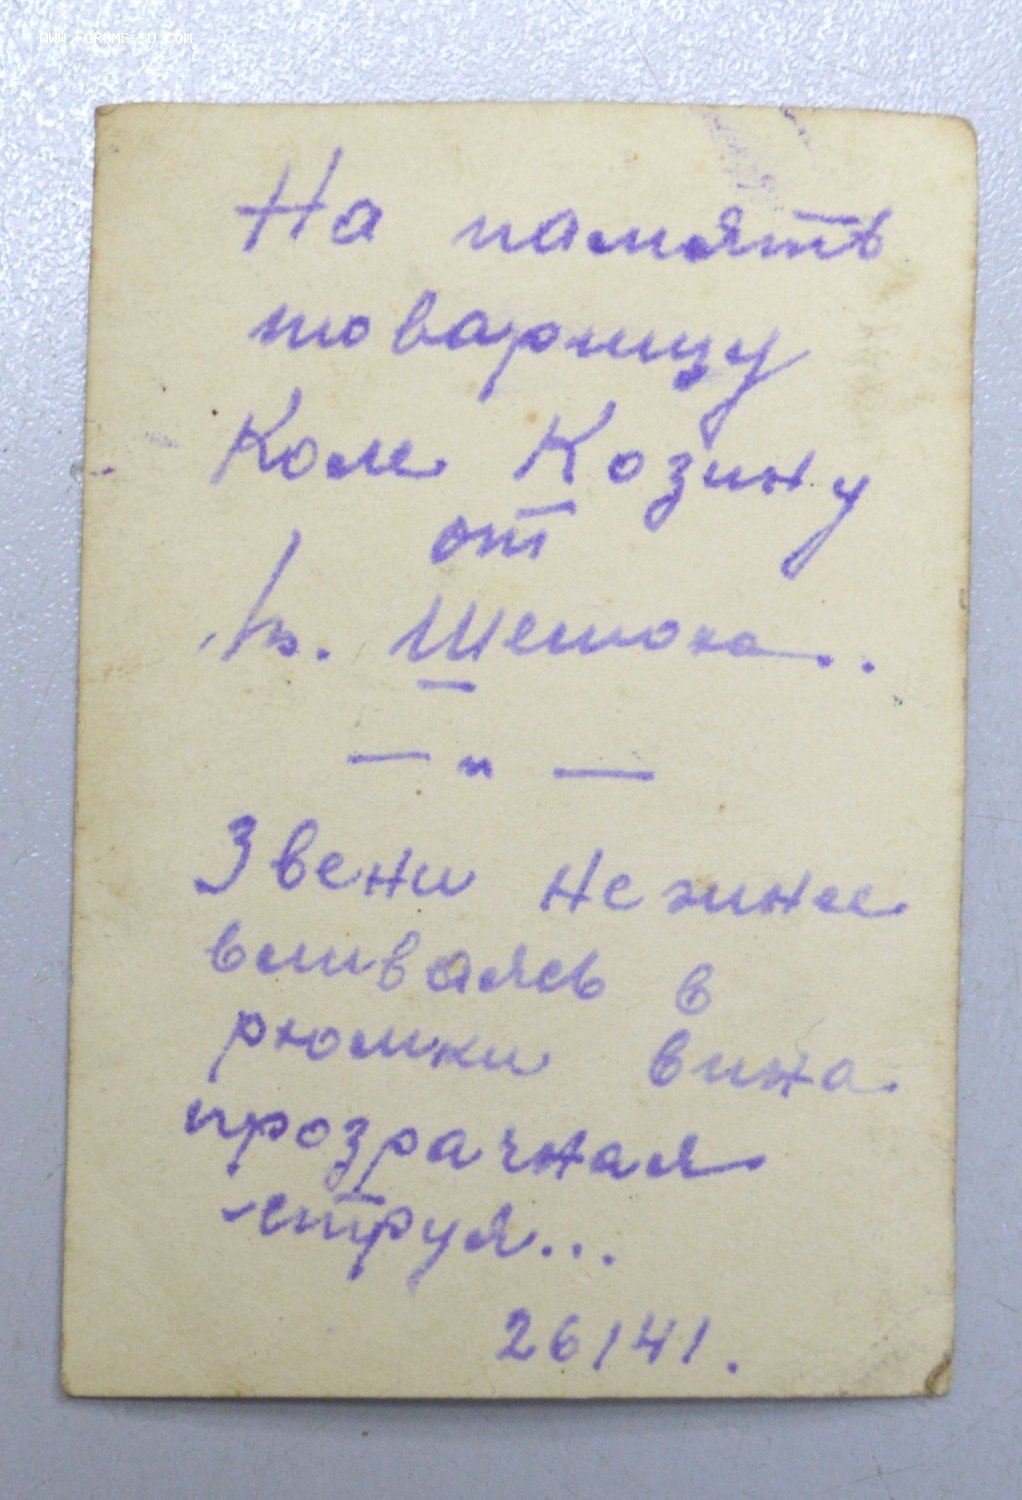 WWW.FORUMS-SU.COM
На память
товарищу
Коле Козину
от
— " —
Звени нежнее
вливаясь в
рюмки вина
прозрачная
струя...
26/41.